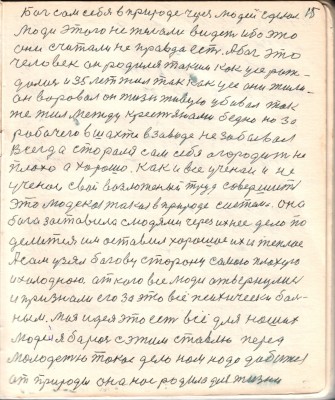 Бог сам себя в природе через людей сделал 15
Люди этого не желали видеть ибо это
они считали не правда есть. А бог это
человек он родился таким как усе рож-
дались и 35 лет жил так как усе они жили-
он воровал он жизь живую убивал так
же жил между крестьянами бедно но за
рабочего в шахте в заводе не забывал
Всегда старался сам себя огородить не
плохо а хорошо. Как и все ученаи и не
ученаи свой возложеный труд совершить
Это людской таков в природе сметом. Она
бога заставила с людями через ихнее дело по
делится им оставил хорошое их и теплое
А сам узял богову сторону самою плохую
и холодною от кого все люди отвернулис
и признали его за это всё психически бол-
ным. Моя идея это есть всё для наших
людей я борюс с этим ставлю перед
молодежю такое дело нам надо добится
от природы она нас родила для жизни